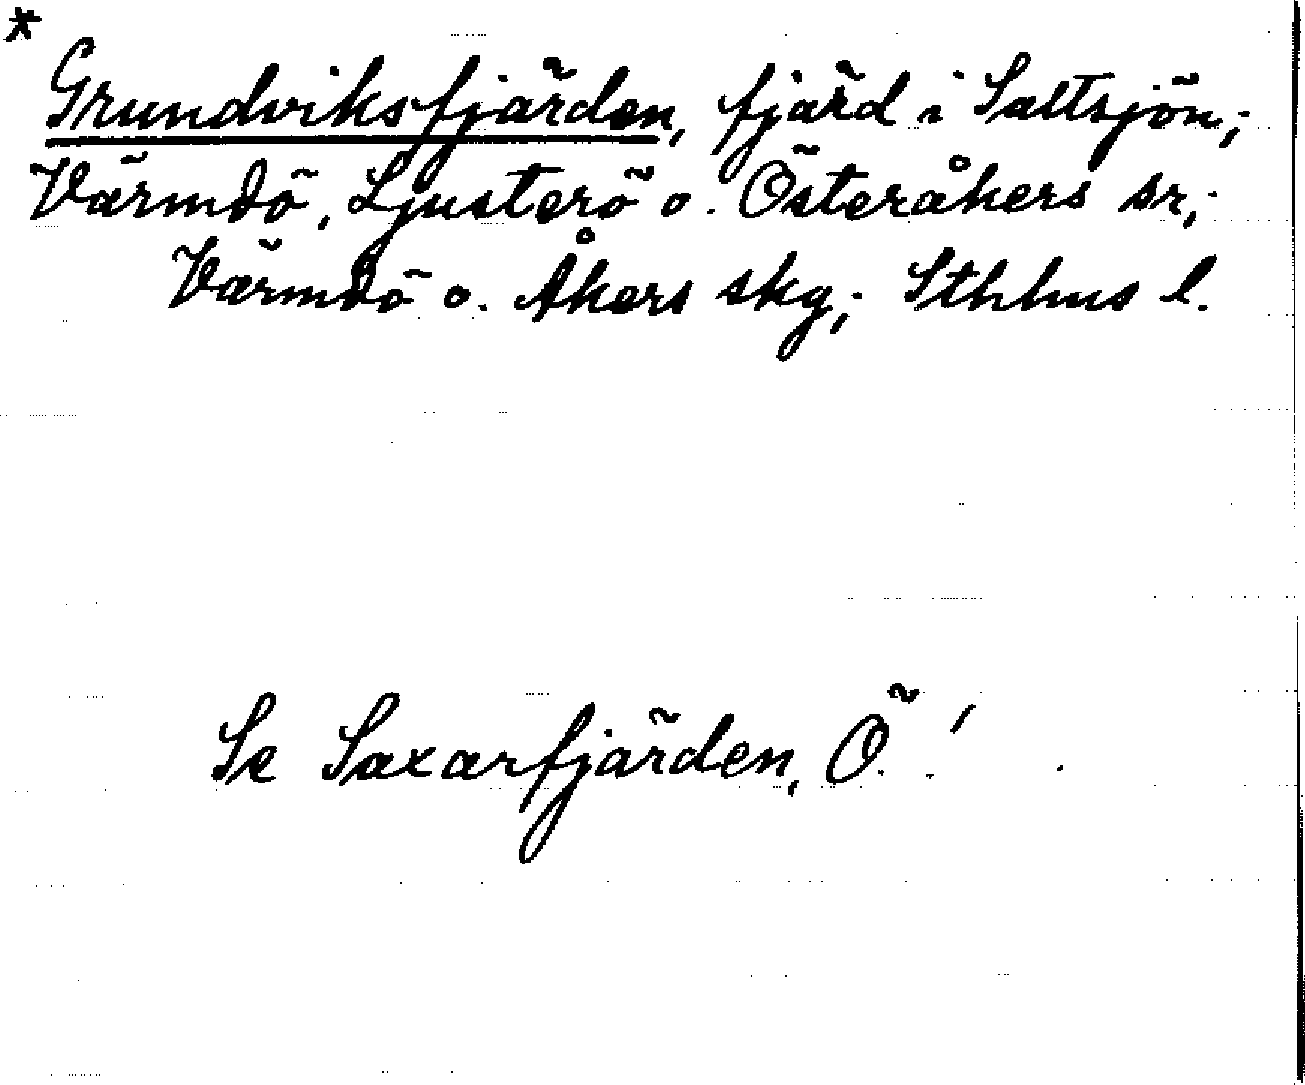 *
Grundviksfjärden, fjärd i Saltsjön;
Värmdö, Ljusterö o. Österåkers sr,
Värmdö o. Åkers skg; Sthlms l.
Se Saxarfjärden, Ö!